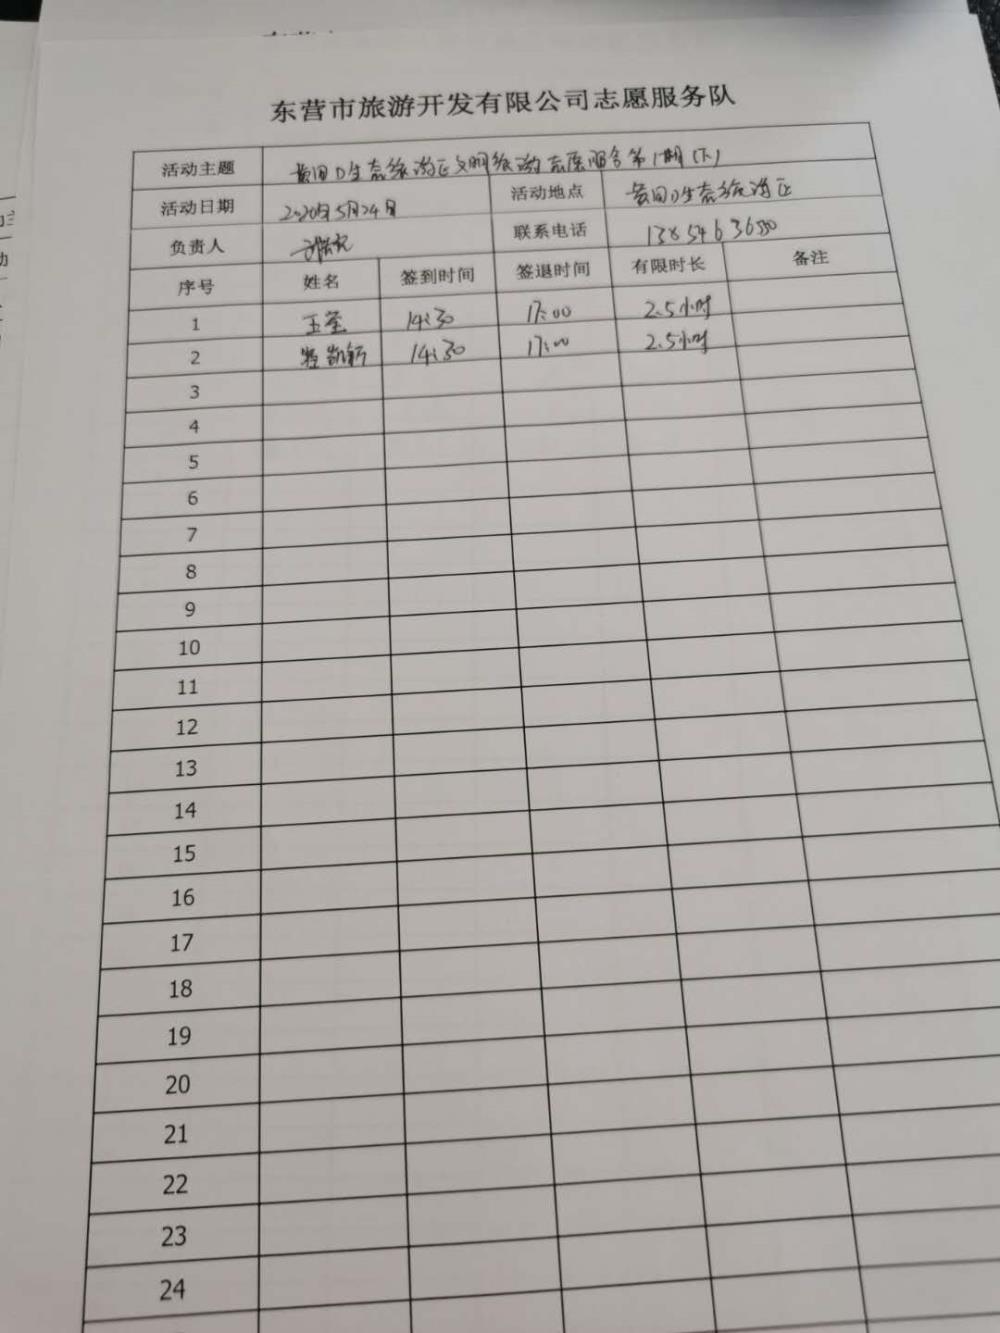 东营市旅游开发有限公司志愿服务队
活动主题 黄河口生态旅游区文明旅游志愿服务第1期(下)
活动日期 2020年5月24日 活动地点 黄河口生态旅游区
负责人 联系电话
序号 姓名 签到时间 签退时间 有限时长 备注
1 王莹 14:30 17:00 2.5小时
2 14:30 17:00 2.5小时
3
4
5
6
7
8
9
10
11
12
13
14
15
16
17
18
19
20
21
22
23
24